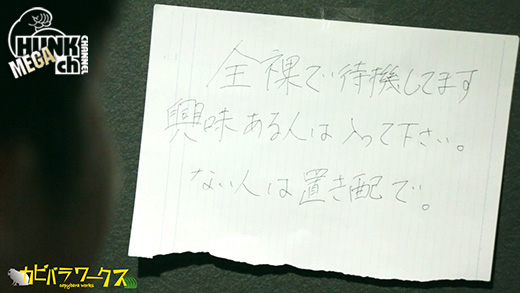 HUNK
MEGA
ch
CHANNEL
全裸で待機してます
興味ある人は入って下さい。
ない人は置き配で。
カピバラワークス
capybara works